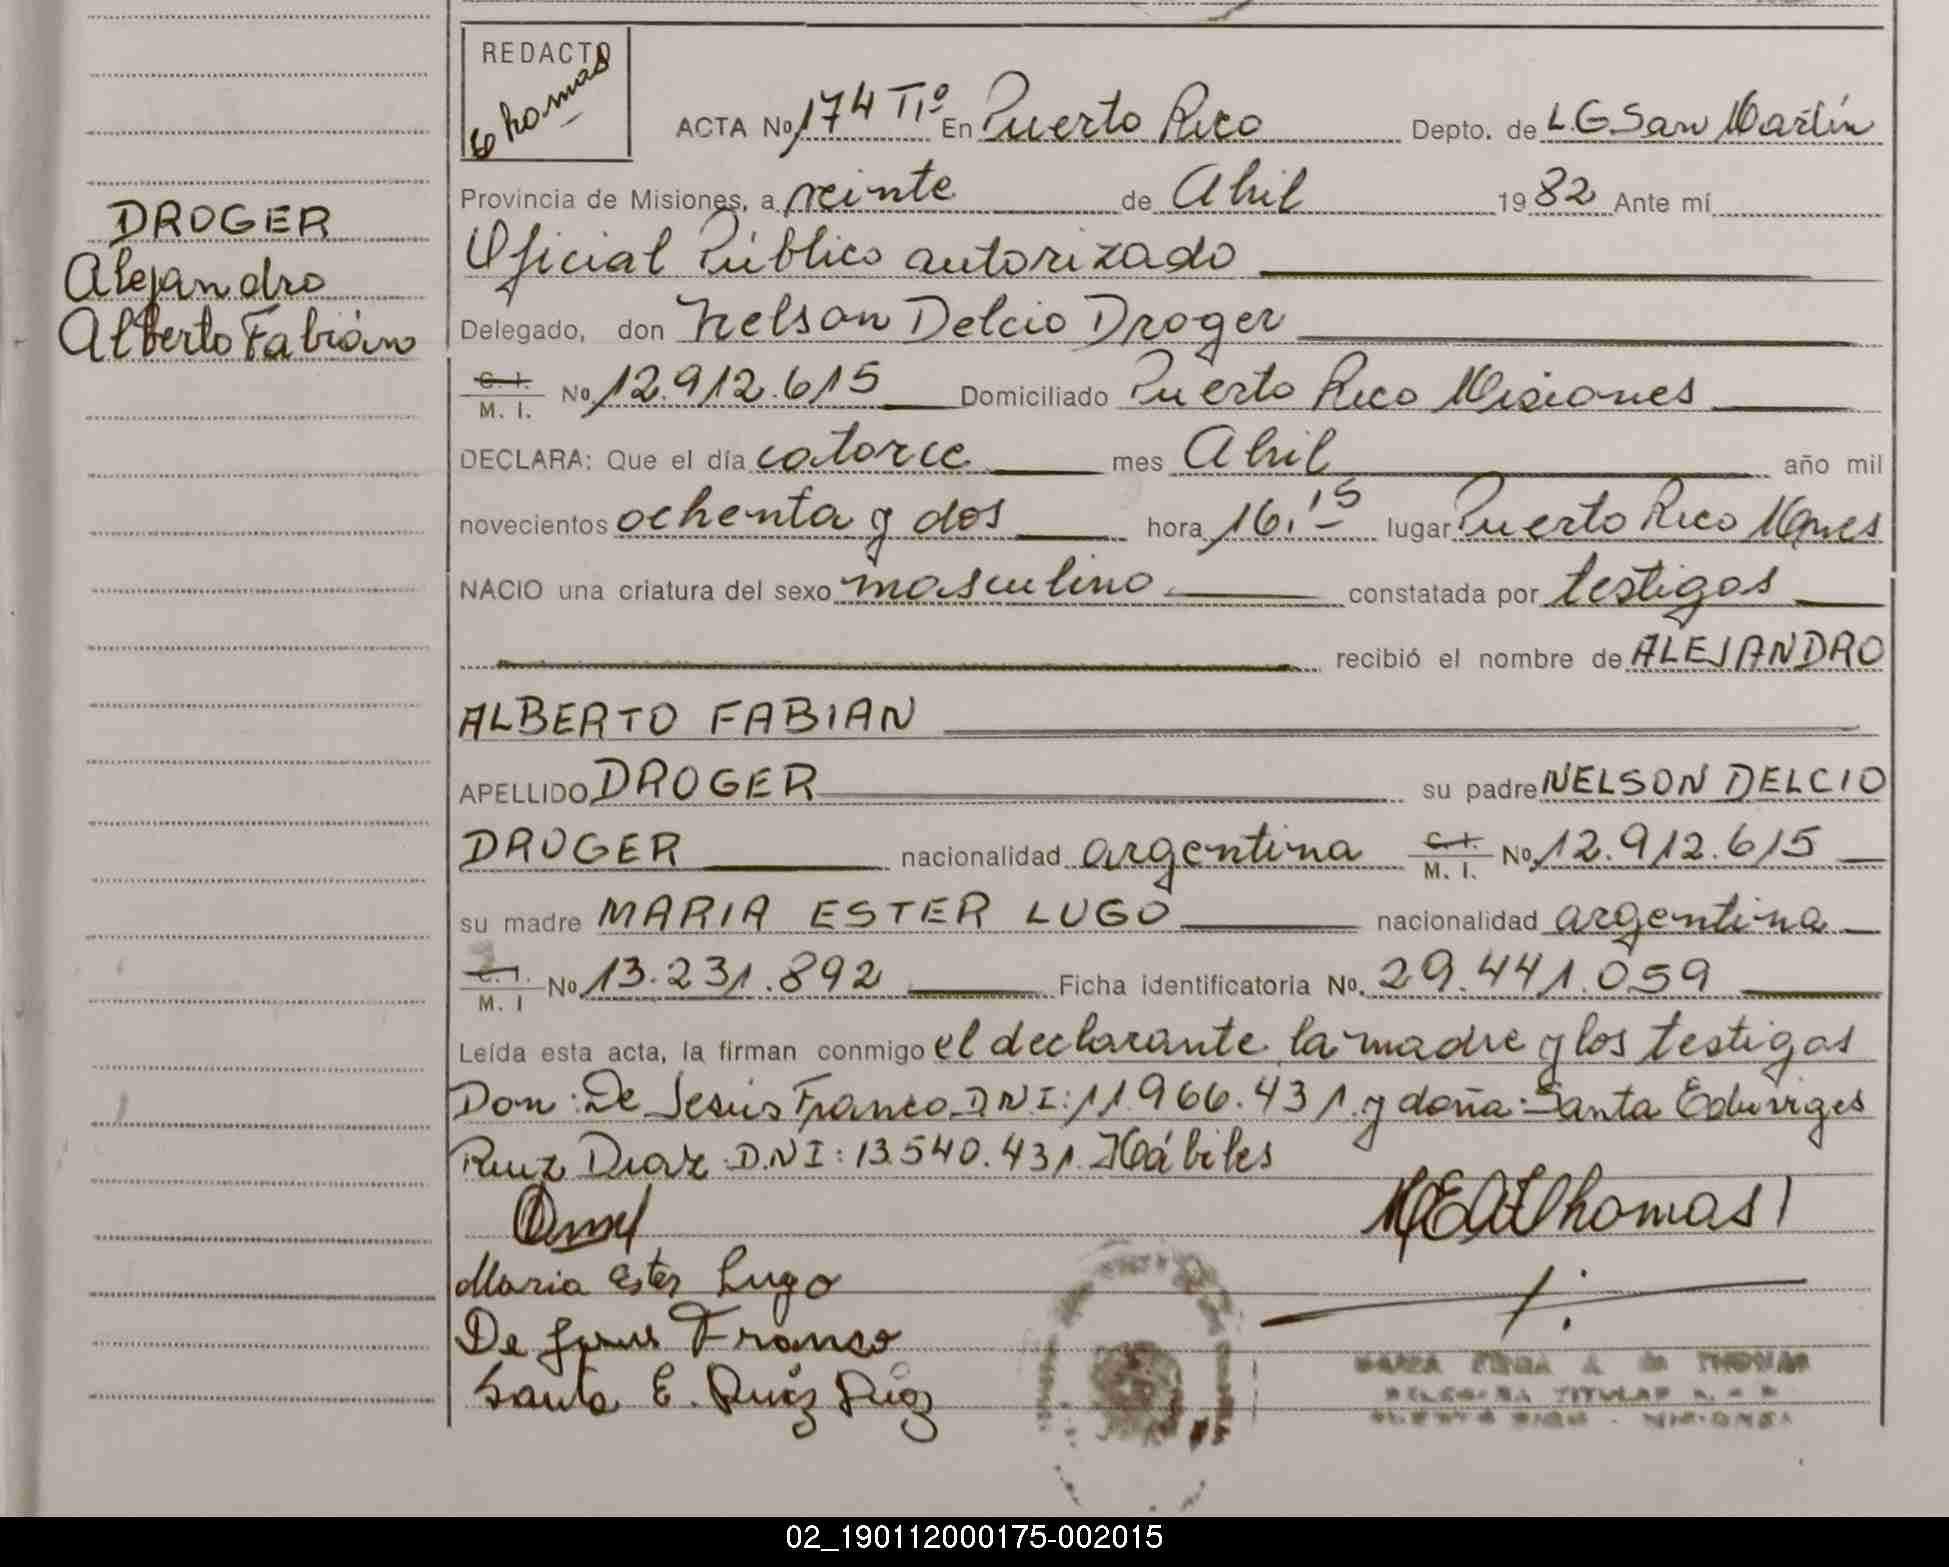 REDACTO
Thomas
ACTA No 174 Tº Iº En Puerto Rico Depto. de L.G. San Martín
Provincia de Misiones, a veinte de Abril 1982 Ante mí
DROGER
Oficial Público autorizado
Alejandro
Alberto Fabián
Delegado, don Nelson Delcio Droger
C. I. M. I. No 12.912.615 Domiciliado Puerto Rico Misiones
DECLARA: Que el día catorce mes Abril año mil
novecientos ochenta y dos hora 16.15 lugar Puerto Rico Mnes
NACIO una criatura del sexo masculino constatada por testigos
recibió el nombre de ALEJANDRO
ALBERTO FABIAN
APELLIDO DROGER su padre NELSON DELCIO
DROGER nacionalidad argentina C. I. M. I. No 12.912.615
su madre MARIA ESTER LUGO nacionalidad argentina
C. I. M. I No 13.231.892 Ficha identificatoria No. 29.441.059
Leída esta acta, la firman conmigo el declarante la madre y los testigos
Don: De Jesús Franco D.N.I: 11.966.431. y doña: Santa Eduviges
Ruiz Diaz D.N I: 13.540.431. Hábiles
Thomas
Maria Ester Lugo
De Jesus Franco
Santa E. Ruiz Diaz
DELEGADA TITULAR
PUERTO RICO - MISIONES
02_190112000175-002015